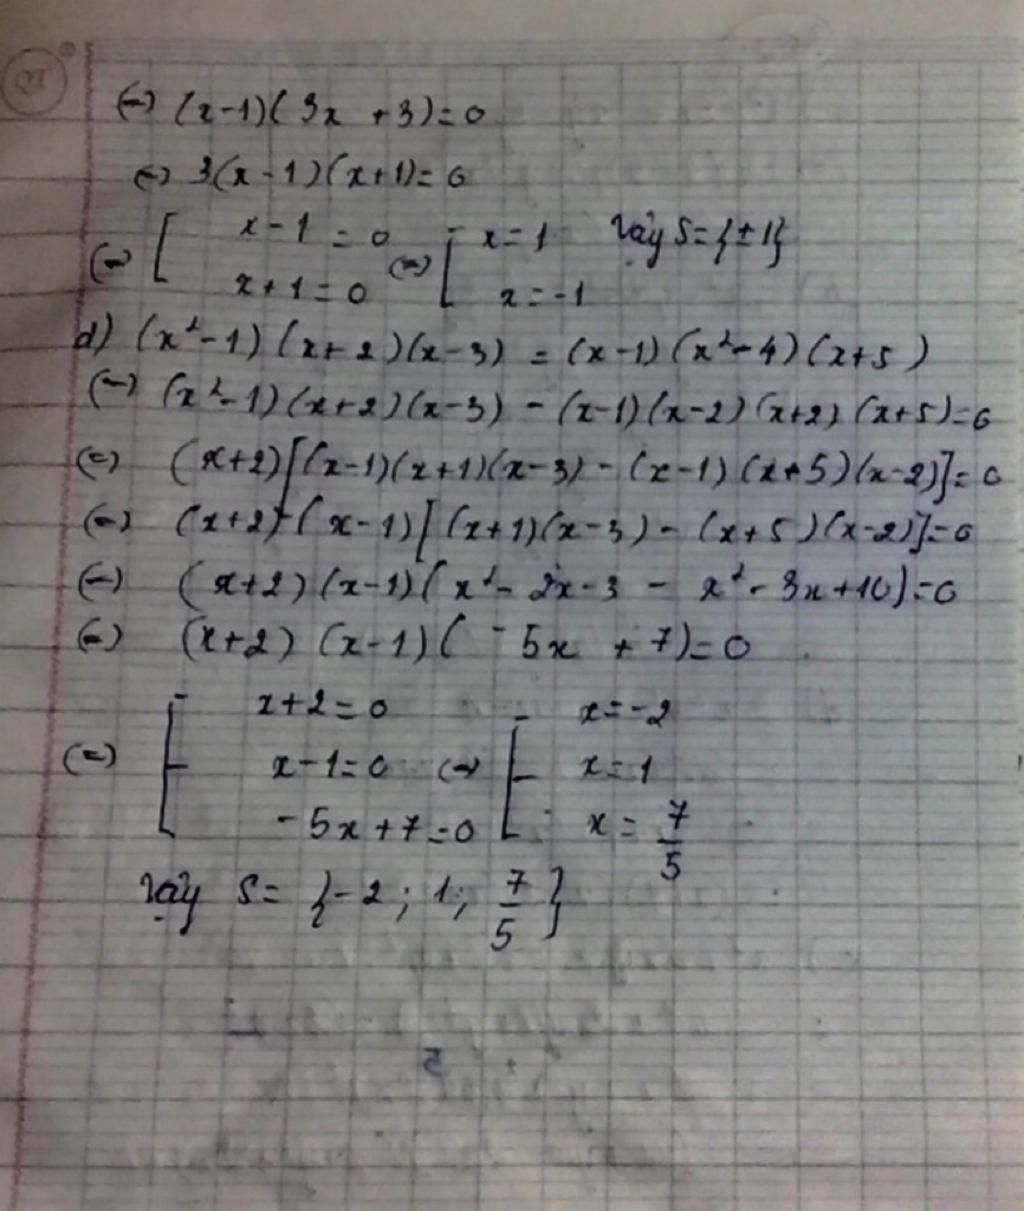 (=) (x-1)(3x + 3) = 0
(=) 3(x-1)(x+1) = 0
(=) [ x-1 = 0 (=) [ x = 1 Vậy S = {±1}
x+1 = 0 x = -1
d) (x²-1)(x+2)(x-3) = (x-1)(x²-4)(x+5)
(=) (x²-1)(x+2)(x-3) - (x-1)(x-2)(x+2)(x+5) = 0
(=) (x+2)[(x-1)(x+1)(x-3) - (x-1)(x+5)(x-2)] = 0
(=) (x+2)(x-1)[(x+1)(x-3) - (x+5)(x-2)] = 0
(=) (x+2)(x-1)(x²- 2x-3 - x²- 3x+10) = 0
(=) (x+2)(x-1)(-5x + 7) = 0
x+2 = 0 x = -2
(=) [ x-1 = 0 (=) [ x = 1
-5x+7 = 0 x = 7/5
Vậy S = {-2 ; 1; 7/5}